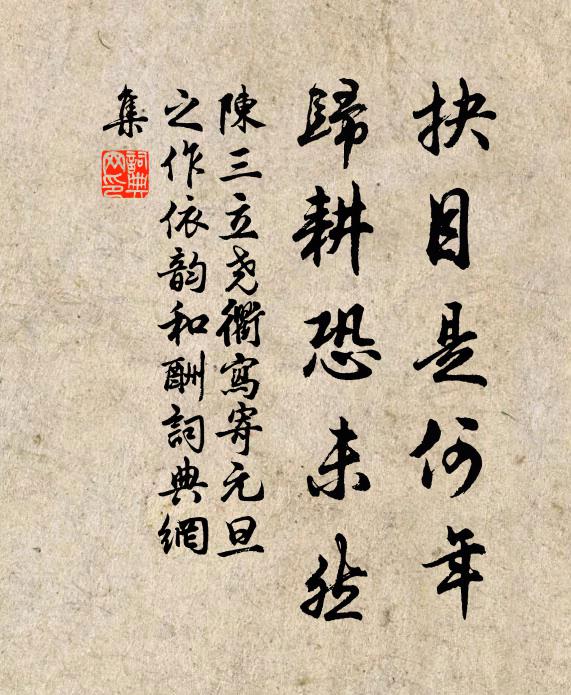 抉目是何年
歸耕恐未然
陳三立尧衢寫寄元旦
之作依韵和酬詞典網
集
詞典網印